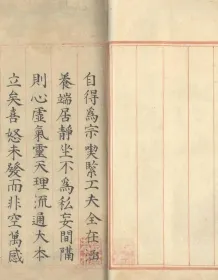 自得為宗喫緊工夫全在涵
養端居靜坐不為私妄間隔
則心虛氣靈天理流通大本
立矣喜怒未發而非空萬感